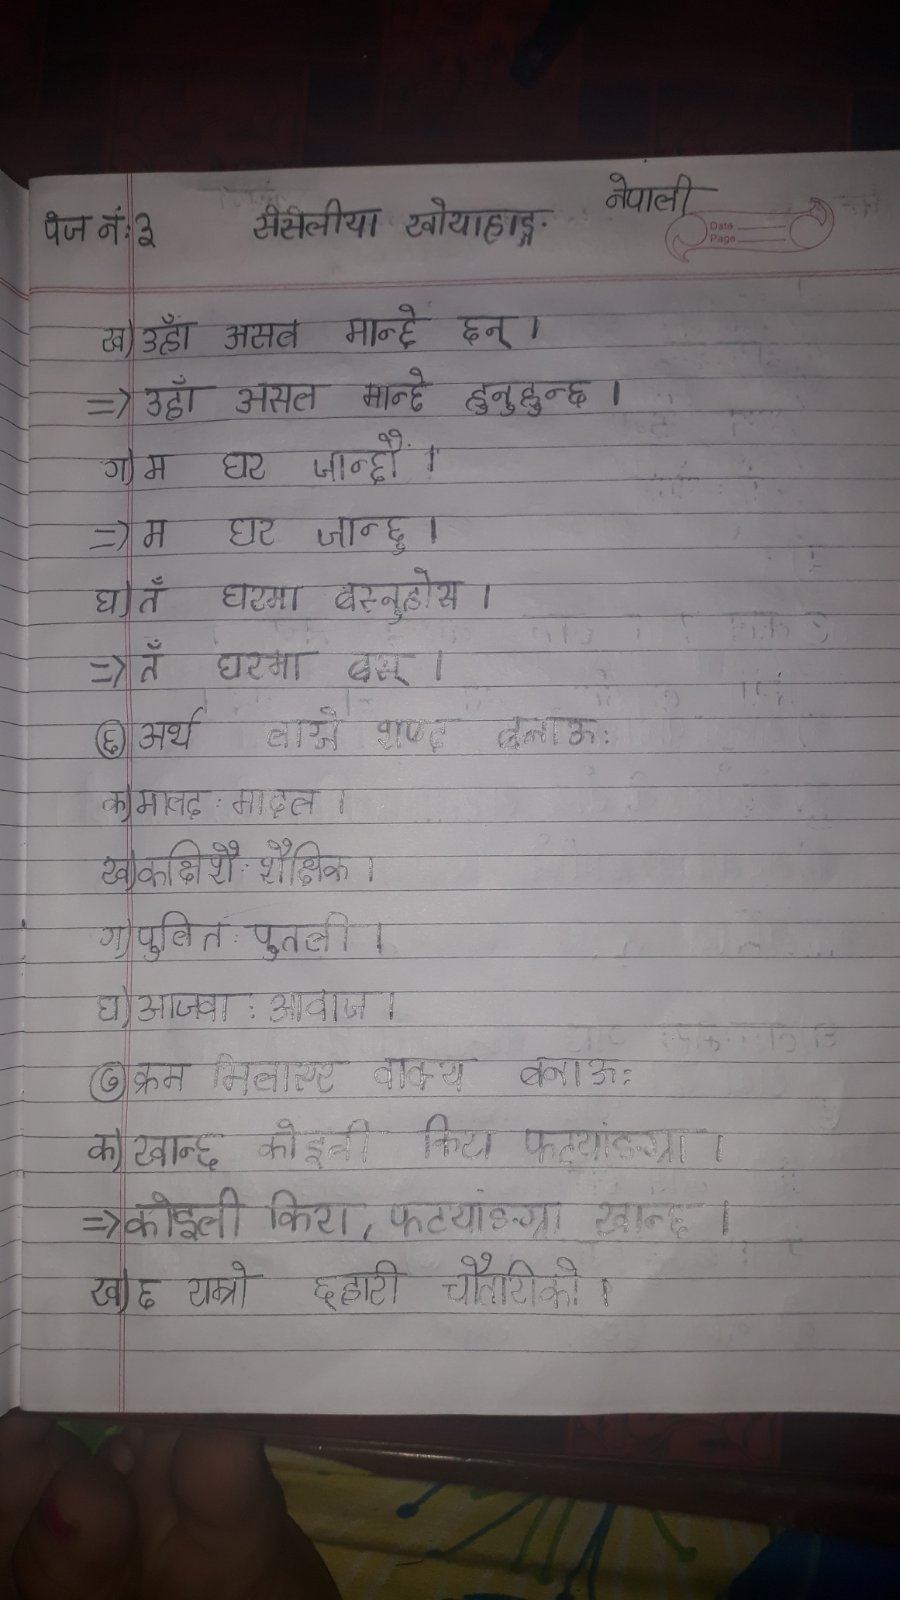 नेपाली
पेज नं:३ सेसेलीया खोयाहाङ्ग
Date
Page
ख) उहाँ असल मान्छे छन् ।
=> उहाँ असल मान्छे हुनुहुन्छ ।
ग) म घर जान्छौं ।
=> म घर जान्छु ।
घ) तँ घरमा बस्नुहोस ।
=> तँ घरमा बस् ।
६ अर्थ लाग्ने शब्द बनाऊ:
क) मालद : मादल ।
ख) कक्षिशै : शैक्षिक ।
ग) पुलित : पुतली ।
घ) आजवा : आवाज ।
७ क्रम मिलाएर वाक्य बनाऊ:
क) खान्छ कोइली किरा फट्याङग्रा ।
=> कोइली किरा, फटयाङग्रा खान्छ ।
ख) छ राम्रो छहारी चौतारीको ।